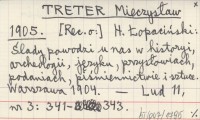 TRETER Mieczysław
1905. [Rec. o:] H. Łopaciński:
Ślady powodzi u nas w historyi,
archeologii, języku, przysłowiach,
podaniach, piśmiennictwie i sztuce.
Warszawa 1904. — Lud 11,
nr 3: 341-343.